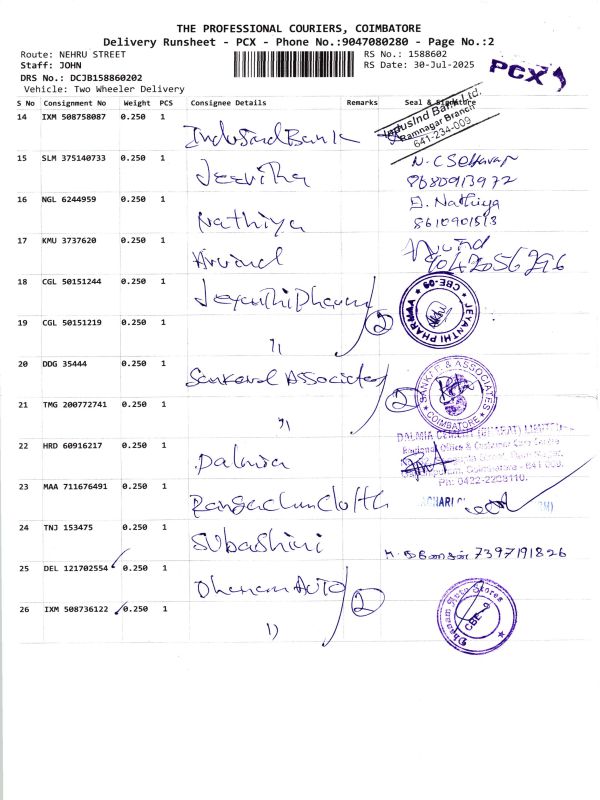 THE PROFESSIONAL COURIERS, COIMBATORE
Delivery Runsheet - PCX - Phone No.:9047080280 - Page No.:2
Route: NEHRU STREET RS No.: 1588602
Staff: JOHN RS Date: 30-Jul-2025
PCX
DRS No.: DCJB158860202
Vehicle: Two Wheeler Delivery
S No Consignment No Weight PCS Consignee Details Remarks Seal & Signature
14 IXM 508758087 0.250 1 IndusInd Bank
IndusInd Bank Ltd.
Ramnagar Branch
641-234-009
15 SLM 375140733 0.250 1 Jeevitha
8680913972
16 NGL 6244959 0.250 1 Nathiya
Nathiya
17 KMU 3737620 0.250 1 Arvind
Arvind
9042056296
18 CGL 50151244 0.250 1 Jeyanthi Pharma
JEYANTHI PHARMAA
CBE-09
19 CGL 50151219 0.250 1 " 2
20 DDG 35444 0.250 1 Sankaral Associates
& ASSOCIATES
COIMBATORE
21 TMG 200772741 0.250 1 " 2
22 HRD 60916217 0.250 1 Dalmia
DALMIA CEMENT (BHARAT) LIMITED
Regional Office & Customer Care Centre
Coimbatore - 641 009.
Ph: 0422-2233110.
23 MAA 711676491 0.250 1
24 TNJ 153475 0.250 1 Subashini
7397191826
25 DEL 121702554 0.250 1 Dhanam Auto
Dhanam Auto Stores
CBE-9
26 IXM 508736122 0.250 1 " 2